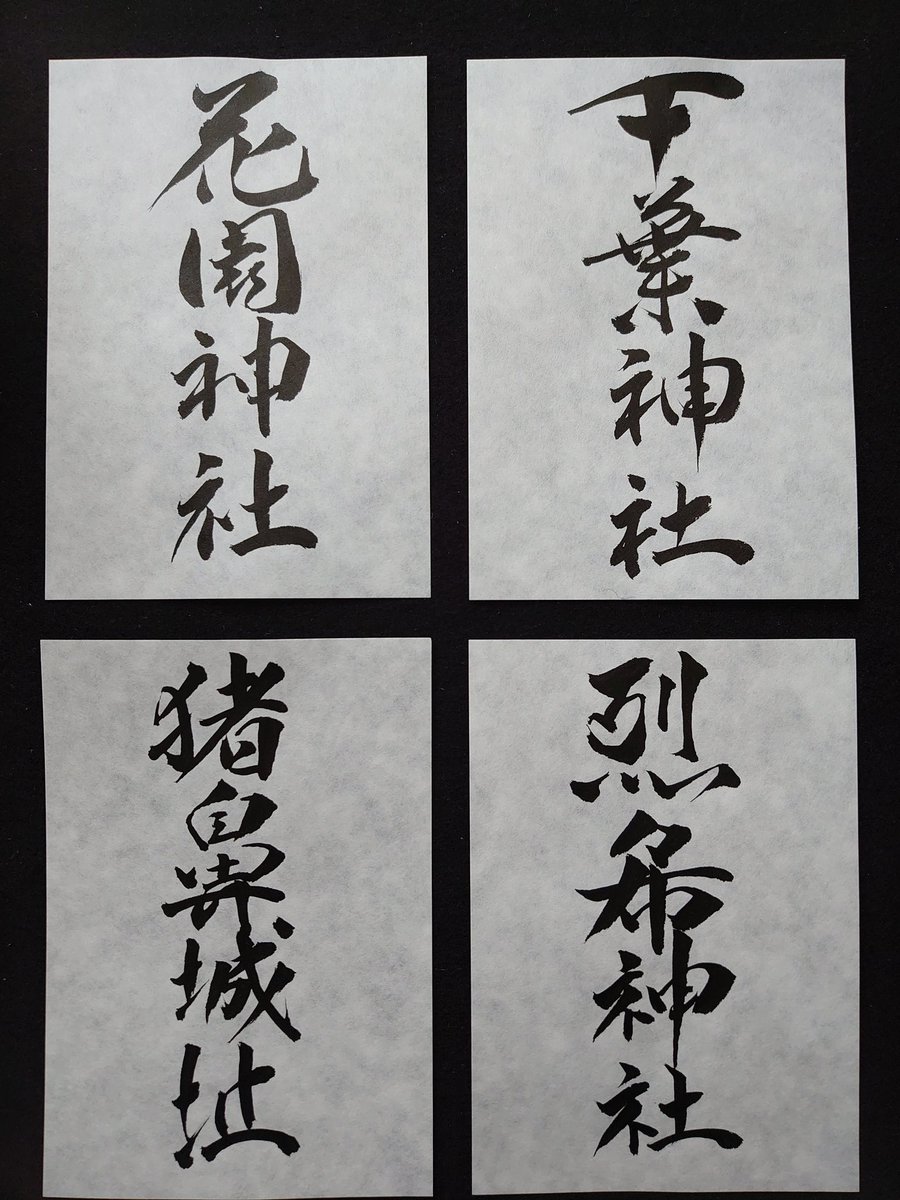 花園神社
千葉神社
猪鼻城址
烈々布神社